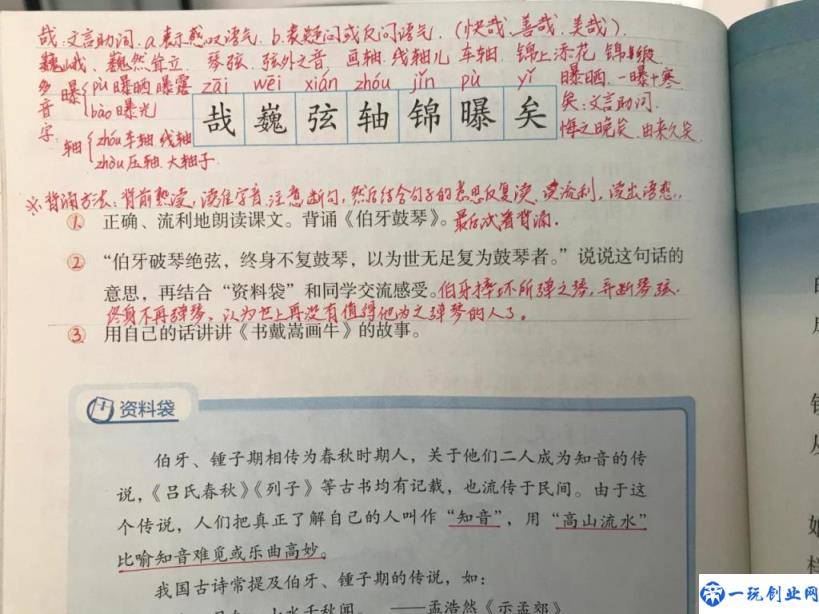 哉:文言助词. a.表示感叹语气. b.表疑问或反问语气. (快哉、善哉、美哉).
巍峨、巍然耸立. 琴弦. 弦外之音 画轴. 线轴儿 车轴. 锦上添花 锦缎
多音字: 曝 pù 曝晒 曝露 zāi wēi xián zhóu jǐn pù yǐ 曝晒. 一曝十寒
bào 曝光 哉 巍 弦 轴 锦 曝 矣 矣:文言助词.
轴 zhóu 车轴 线轴 悔之晚矣. 由来久矣.
zhòu 压轴. 大轴子
※背诵方法:背前熟读,读准字音,注意断句,然后结合句子的意思反复读,读流利,读出语感,
① 正确、流利地朗读课文。背诵《伯牙鼓琴》。最后试着背诵.
② “伯牙破琴绝弦,终身不复鼓琴,以为世无足复为鼓琴者。”说说这句话的
意思,再结合“资料袋”和同学交流感受。伯牙摔坏所弹之琴,弄断琴弦.
终身不再弹琴,认为世上再没有值得他为之弹琴的人了。
③ 用自己的话讲讲《书戴嵩画牛》的故事。
资料袋
伯牙、锺子期相传为春秋时期人,关于他们二人成为知音的传
说,《吕氏春秋》《列子》等古书均有记载,也流传于民间。由于这
个传说,人们把真正了解自己的人叫作“知音”,用“高山流水”
比喻知音难觅或乐曲高妙。
我国古诗常提及伯牙、锺子期的传说,如:
——孟浩然《示孟郊》
一玩创业网